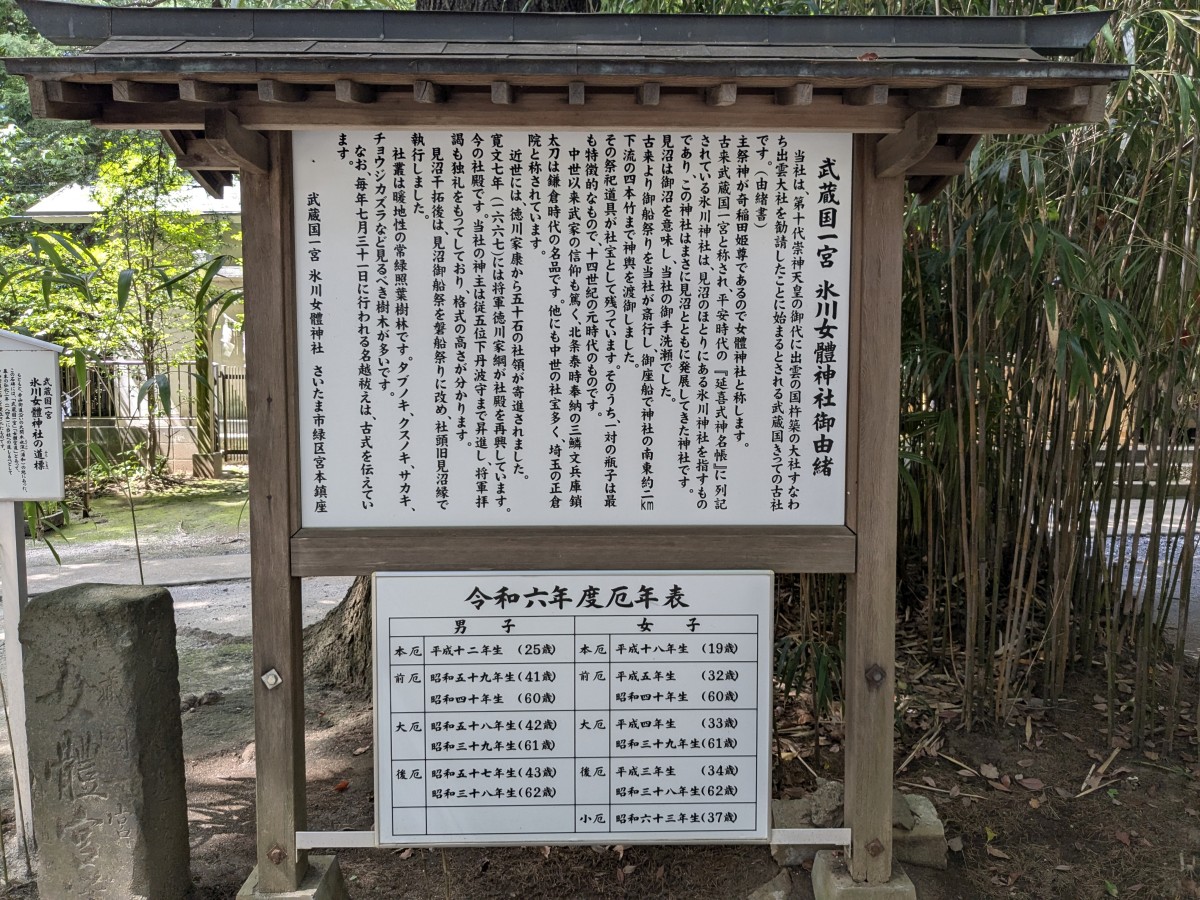 武蔵国一宮 氷川女體神社御由緒
当社は、第十代崇神天皇の御代に出雲の国杵築の大社すなわ
ち出雲大社を勧請したことに始まるとされる武蔵国きっての古社
です。（由緒書）
主祭神が奇稲田姫尊であるので女體神社と称します。
古来武蔵国一宮と称され、平安時代の『延喜式神名帳』に列記
されている氷川神社は、見沼のほとりにある氷川神社を指すもの
であり、この神社はまさに見沼とともに発展してきた神社です。
見沼は御沼を意味し、当社の御手洗瀬でした。
古来より御船祭りを当社が斎行し、御座船で神社の南東約二㎞
下流の四本竹まで神輿を渡御しました。
その祭祀道具が社宝として残っています。そのうち、一対の瓶子は最
も特徴的なもので、十四世紀の元時代のものです。
中世以来武家の信仰も篤く、北条泰時奉納の三鱗文兵庫鎖
太刀は鎌倉時代の名品です。他にも中世の社宝多く、埼玉の正倉
院と称されています。
近世には、徳川家康から五十石の社領が寄進されました。
寛文七年（一六六七）には将軍徳川家綱が社殿を再興しています。
今の社殿です。当社の神主は従五位下丹波守まで昇進し、将軍拝
謁も独礼をもってしており、格式の高さが分かります。
見沼干拓後は、見沼御船祭を磐船祭りに改め、社頭旧見沼縁で
執行しました。
社叢は暖地性の常緑照葉樹林です。タブノキ、クスノキ、サカキ、
チョウジカズラなど見るべき樹木が多いです。
なお、毎年七月三十一日に行われる名越祓えは、古式を伝えてい
ます。
武蔵国一宮 氷川女體神社 さいたま市緑区宮本鎮座
令和六年度厄年表
男子 女子
本厄 平成十二年生 (25歳) 本厄 平成十八年生 (19歳)
前厄 昭和五十九年生(41歳) 前厄 平成五年生 (32歳)
昭和四十年生 (60歳) 昭和四十年生 (60歳)
大厄 昭和五十八年生(42歳) 大厄 平成四年生 (33歳)
昭和三十九年生(61歳) 昭和三十九年生(61歳)
後厄 昭和五十七年生(43歳) 後厄 平成三年生 (34歳)
昭和三十八年生(62歳) 昭和三十八年生(62歳)
小厄 昭和六十三年生(37歳)
武蔵国一宮
氷川女體神社の道標
女體宮